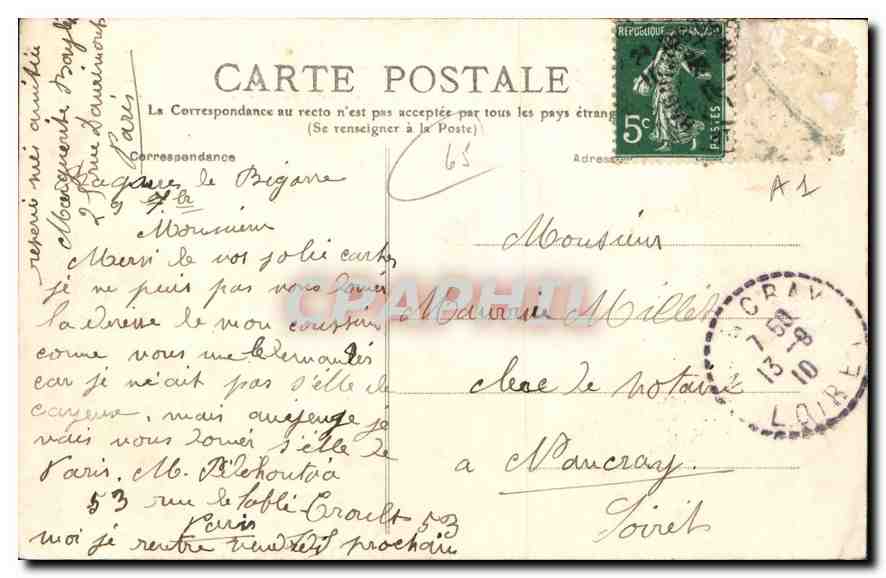 CARTE POSTALE
La Correspondance au recto n'est pas acceptée par tous les pays étrang
(Se renseigner à la Poste)
Correspondance
Adres
REPUBLIQUE FRANÇAISE
5c
POSTES
65
A1
Bagneres de Bigorre
9 7bre
Monsieur
Mersi de vos jolie cartes
je ne puis pas vous donner
la drese de mon coussin
come vous me le demandés
car je n'ait pas s'elle de
cayeux, mais je
vais vous doner s'elle de
Paris. M.
53 rue de 53
Paris
moi je rentre vendredi prochain
resevé mes amitiés
Marguerite
2 rue
Paris
Monsieur
Maurice Millet
clerc de notaire
a Nancray
Loiret
NCRAY
7 50
13 - 8
10
LOIRET
CPAPHIL